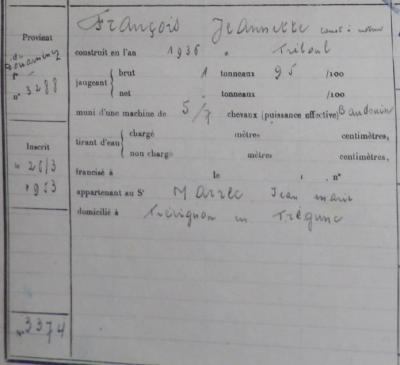 François Jeannette canot à moteur
Provient
du
Douarnenez
n° 3288
construit en l'an 1936 à Tréboul
jaugeant { brut 1 tonneaux 95 /100
net . tonneaux /100
muni d'une machine de 5/7 chevaux (puissance effective) Baudouin
tirant d'eau { chargé mètres centimètres,
non chargé mètres centimètres,
Inscrit
le 26/3
1953
francisé à le , n°
appartenant au Sr Marrec Jean Marie
domicilié à Trévignon en Trégunc
n° 3374